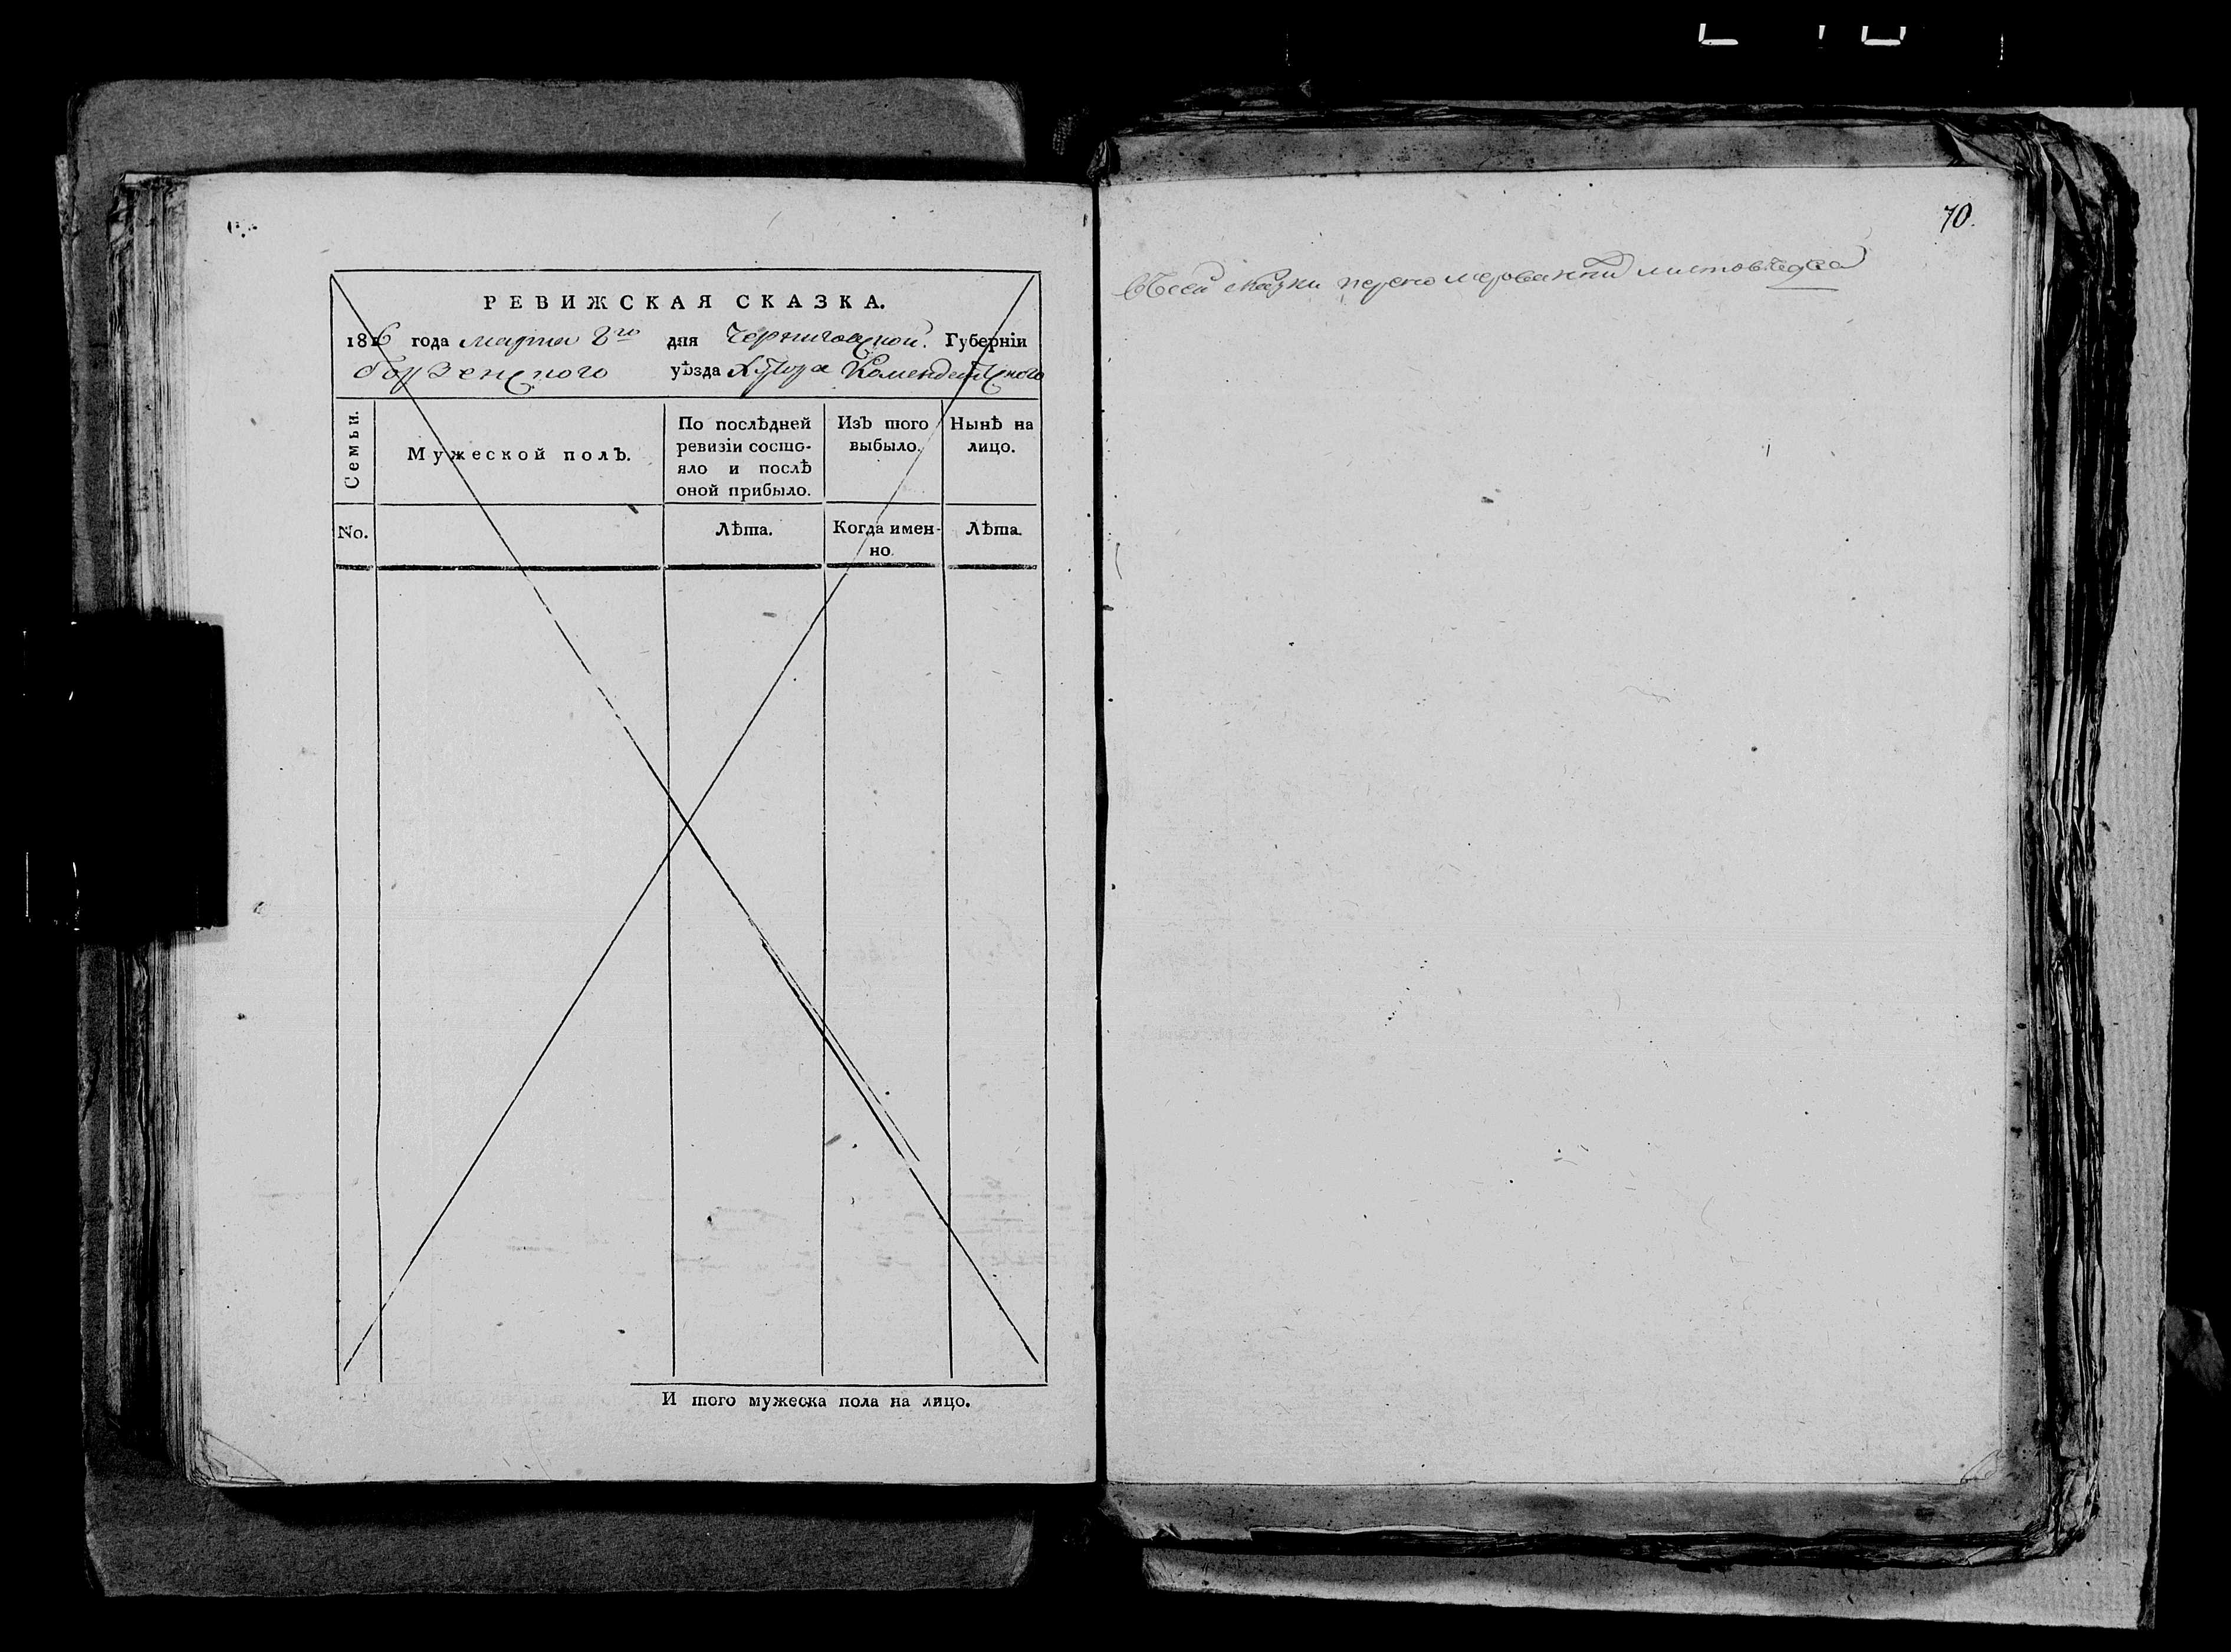 РЕВИЖСКАЯ СКАЗКА.
1816 года марта 8го дня Черниговской Губерніи
Борзенского уѣзда Хутора Комендантского
Семьи.
Мужеской полЪ.
По послѣдней
ревизіи состо-
яло и послѣ
оной прибыло.
ИзЪ того
выбыло.
НынѢ на
лицо.
No.
Лѣта.
Когда имен-
но.
Лѣта.
И того мужеска пола на лицо.
70.
вСей сказки перено мерованной листов два